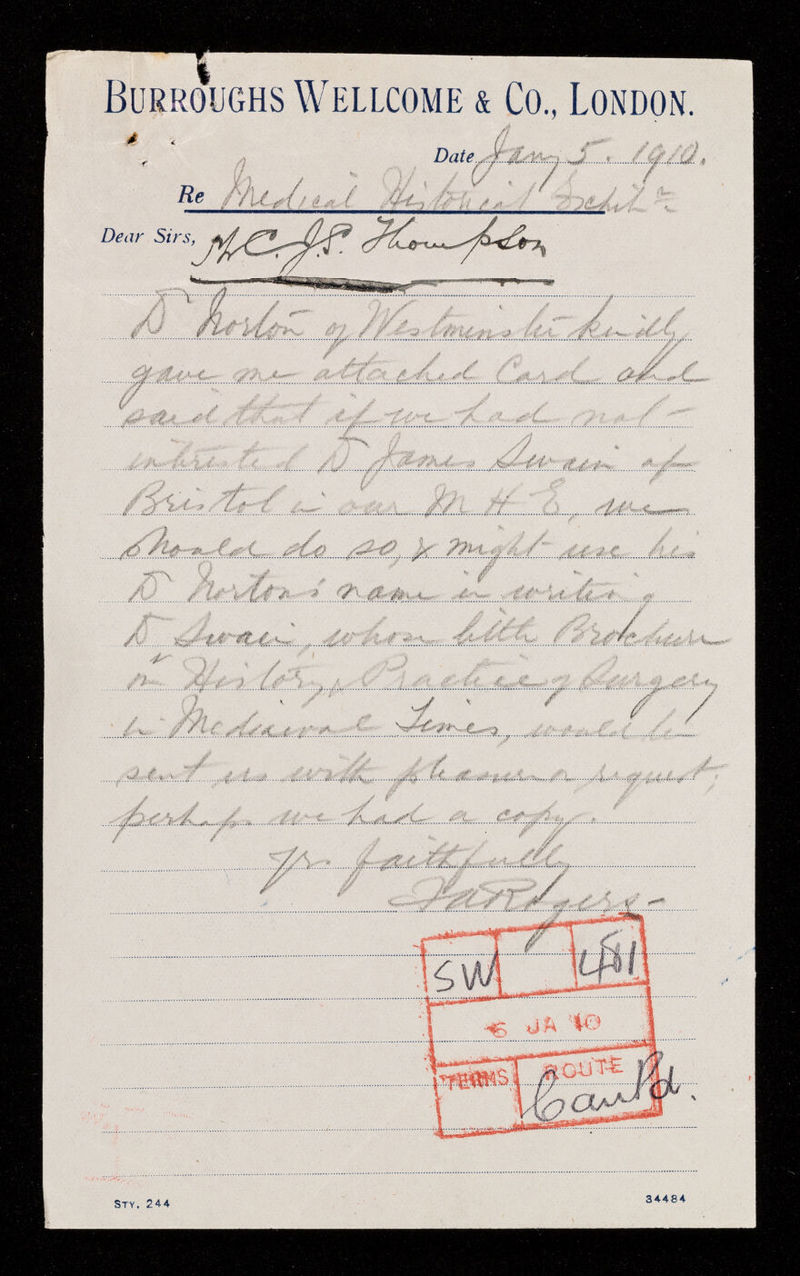 BURROUGHS WELLCOME & CO., LONDON.
Date Jany 5. 1910.
Re Medical Historical Exhibn
Dear Sirs,
Mr C. J. S. Thompson
Dr Norton of Westminster kindly
gave me attached Card and
said that if we had not
interested Dr James Swain of
Bristol in our M H E, we
should do so, & might use his
Dr Norton's name in writing
Dr Swain, whose little Brochure
on History & Practice of Surgery
in Mediaeval Times, would be
sent us with pleasure on request;
perhaps we had a copy.
Yrs faithfully
Rogers
SW 481
6 JA 10
TERMS ROUTE
STY. 244
34484